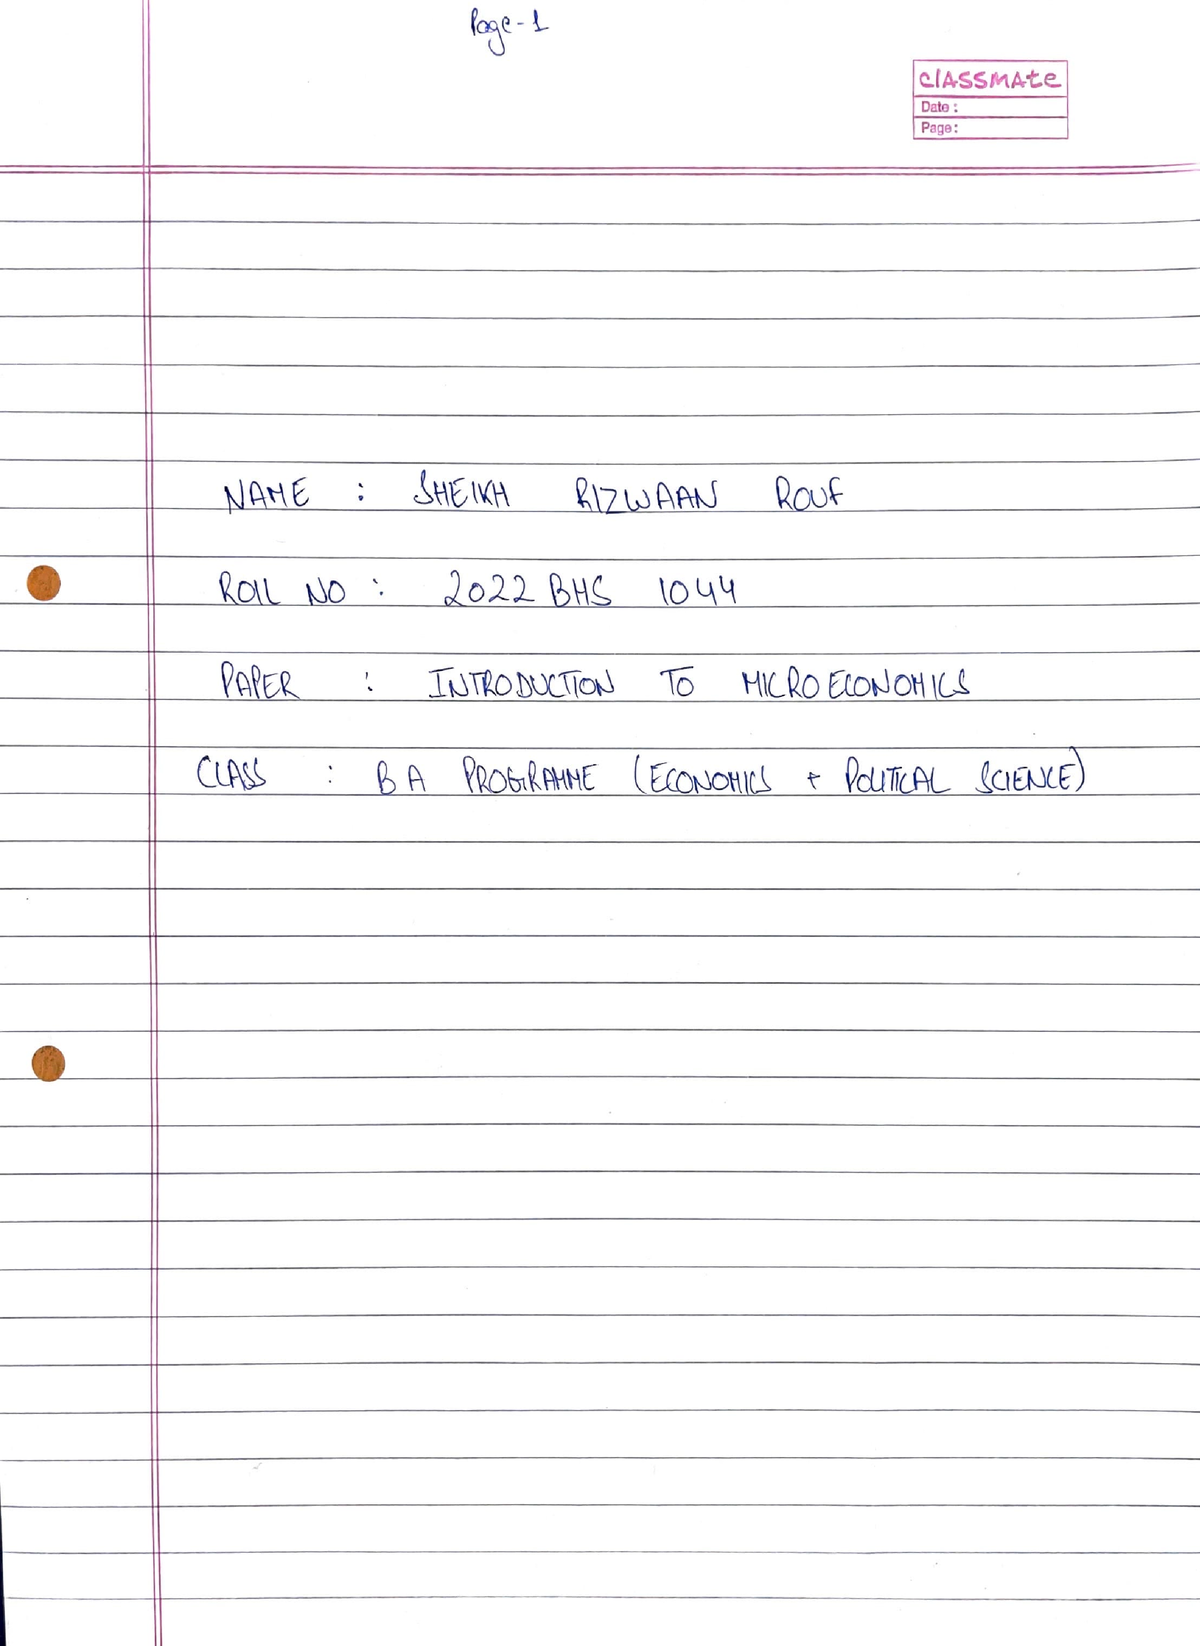 Page-1
classmate
Date :
Page:
NAME : SHEIKH RIZWAAN ROUF
ROLL NO : 2022 BHS 1044
PAPER : INTRODUCTION TO MICROECONOMICS
CLASS : BA PROGRAMME (ECONOMICS + POLITICAL SCIENCE)